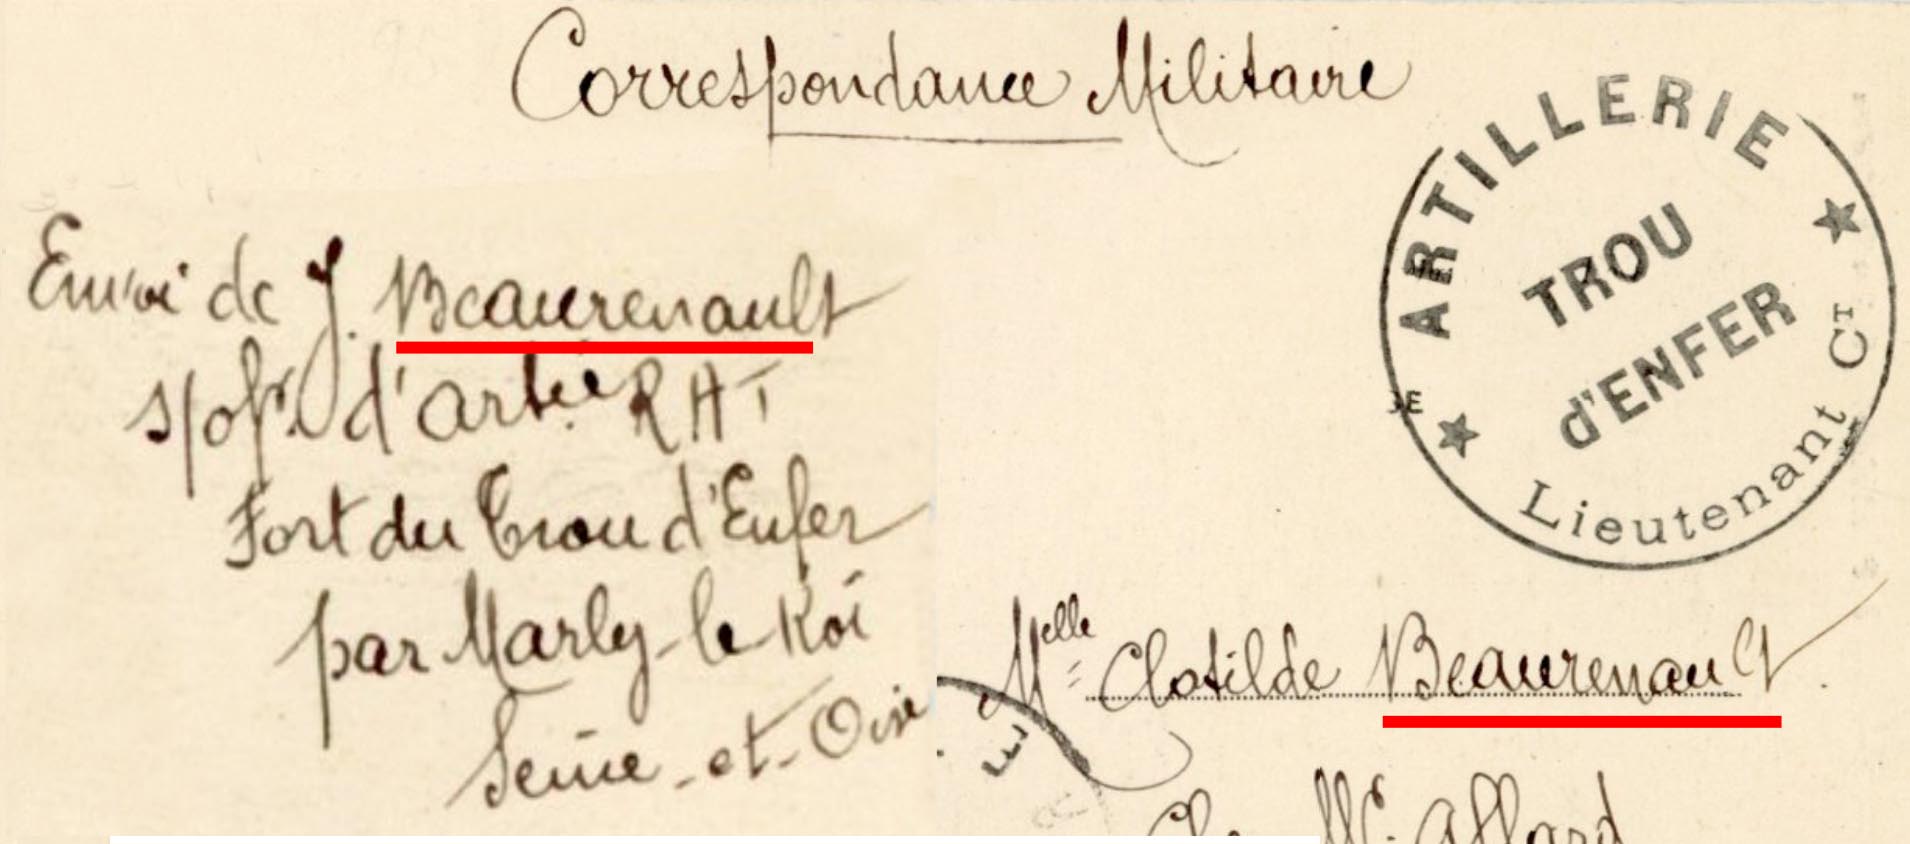 Correspondance Militaire
Envoi de J. Beaurenault
s/ofr. d'artie R A T
Fort du Trou d'Enfer
par Marly-le Roi
Seine-et-Oise
ARTILLERIE
TROU
d'ENFER
Lieutenant CT
Melle Clotilde Beaurenault
Allard